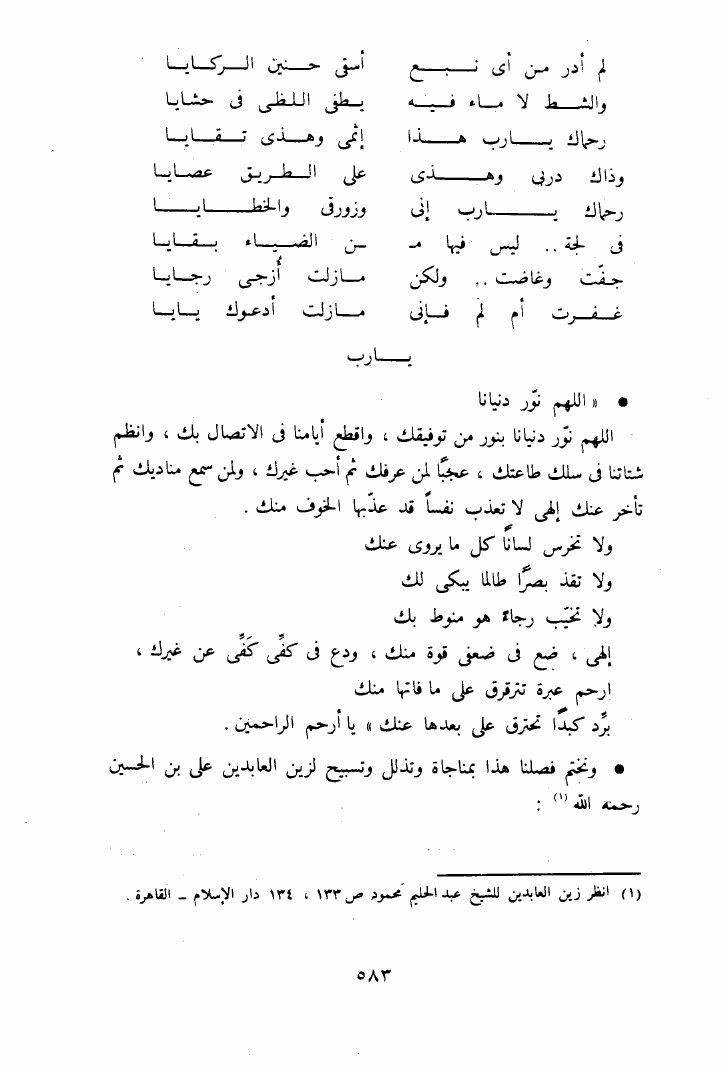 لم أدر من أى نبع أسقى حنين الركايا
والشط لا ماء فيه يطفى اللظى فى حشايا
رحماك يارب هذا إثمى وهذى تقايا
وذاك دربى وهذى على الطريق عصايا
رحماك يارب إنى وزورقى والخطايا
فى لجة .. ليس فيها مـ ـن الضياء بقايا
جفّت وغاضت .. ولكن مازلت أُزجى رجايا
غفرت أم لم فإنى مازلت أدعوك يايا
يارب
• « اللهم نوّر دنيانا
اللهم نوّر دنيانا بنور من توفيقك ، واقطع أيامنا فى الاتصال بك ، وانظم
شتاتنا فى سلك طاعتك ، عجبًا لمن عرفك ثم أحب غيرك ، ولمن سمع مناديك ثم
تأخر عنك إلهى لا تعذب نفساً قد عذّبها الخوف منك .
ولا تخرس لسانًا كل ما يروى عنك
ولا تقذ بصرًا طالما يبكى لك
ولا تخيّب رجاءً هو منوط بك
إلهى ، ضع فى ضعفى قوة منك ، ودع فى كفِّى كَفِّى عن غيرك ،
ارحم عبرة تترقرق على ما فاتها منك
برِّد كبدًا تحترق على بعدها عنك » يا أرحم الراحمين .
• ونختم فصلنا هذا بمناجاة وتذلل وتسبيح لزين العابدين على بن الحسين
رحمه الله (١) :
(١) انظر زين العابدين للشيخ عبد الحليم محمود ص ١٣٣ ، ١٣٤ دار الإسلام ــ القاهرة .
٥٨٣